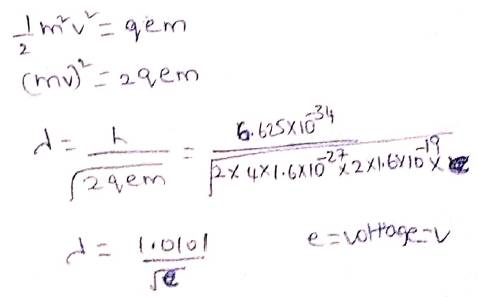 1/2 m²v² = qem
(mv)² = 2qem
λ = h/√2qem = 6.625×10⁻³⁴/√2×4×1.6×10⁻²⁷×2×1.6×10⁻¹⁹×e
λ = 1.0101/√e e = voltage = V